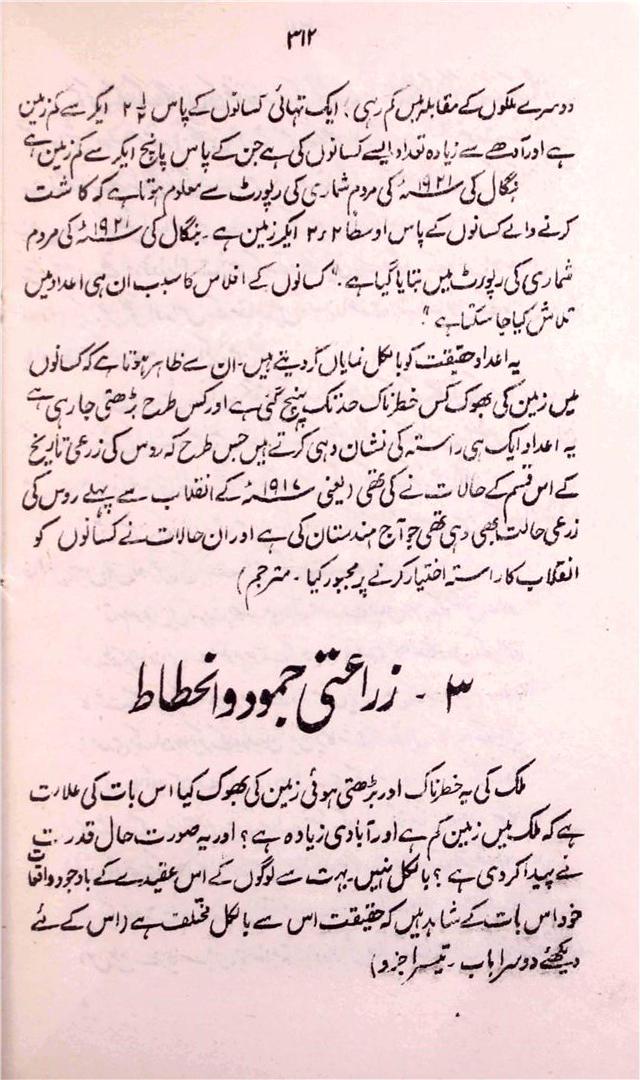 ۳۱۲
دوسرے ملکوں کے مقابلہ میں کم رہی؛ ایک تہائی کسانوں کے پاس ۲ ۱/۲ ایکر سے کم زمین
ہے اور آدھے سے زیادہ تعداد ایسے کسانوں کی ہے جن کے پاس پانچ ایکر سے کم زمین ہے
بنگال کی ۱۹۲۱ء کی مردم شماری کی رپورٹ سے معلوم ہوتا ہے کہ کاشت
کرنے والے کسانوں کے پاس اوسطاً ۲٫۲ ایکر زمین ہے۔ بنگال کی ۱۹۲۱ء کی مردم
شماری کی رپورٹ میں بتایا گیا ہے۔ "کسانوں کے افلاس کا سبب ان ہی اعداد میں
تلاش کیا جا سکتا ہے"۔
یہ اعداد حقیقت کو بالکل نمایاں کر دیتے ہیں۔ ان سے ظاہر ہوتا ہے کہ کسانوں
میں زمین کی بھوک کس خطرناک حد تک پہنچ گئی ہے اور کس طرح بڑھتی جا رہی ہے
یہ اعداد ایک ہی راستہ کی نشان دہی کرتے ہیں جس طرح کہ روس کی زرعی تاریخ
کے اس قسم کے حالات نے کی تھی (یعنی ۱۹۱۷ء کے انقلاب سے پہلے روس کی
زرعی حالت بھی وہی تھی جو آج ہندستان کی ہے اور ان حالات نے کسانوں کو
انقلاب کا راستہ اختیار کرنے پر مجبور کیا۔ مترجم)
۳ - زراعتی جمود و انحطاط
ملک کی یہ خطرناک اور بڑھتی ہوئی زمین کی بھوک کیا اس بات کی علامت
ہے کہ ملک میں زمین کم ہے اور آبادی زیادہ ہے؟ اور یہ صورت حال قدرت
نے پیدا کر دی ہے؟ بالکل نہیں۔ بہت سے لوگوں کے اس عقیدے کے باوجود واقعات
خود اس بات کے شاہد ہیں کہ حقیقت اس سے بالکل مختلف ہے (اس کے لئے
دیکھئے دوسرا باب۔ تیسرا جزو)